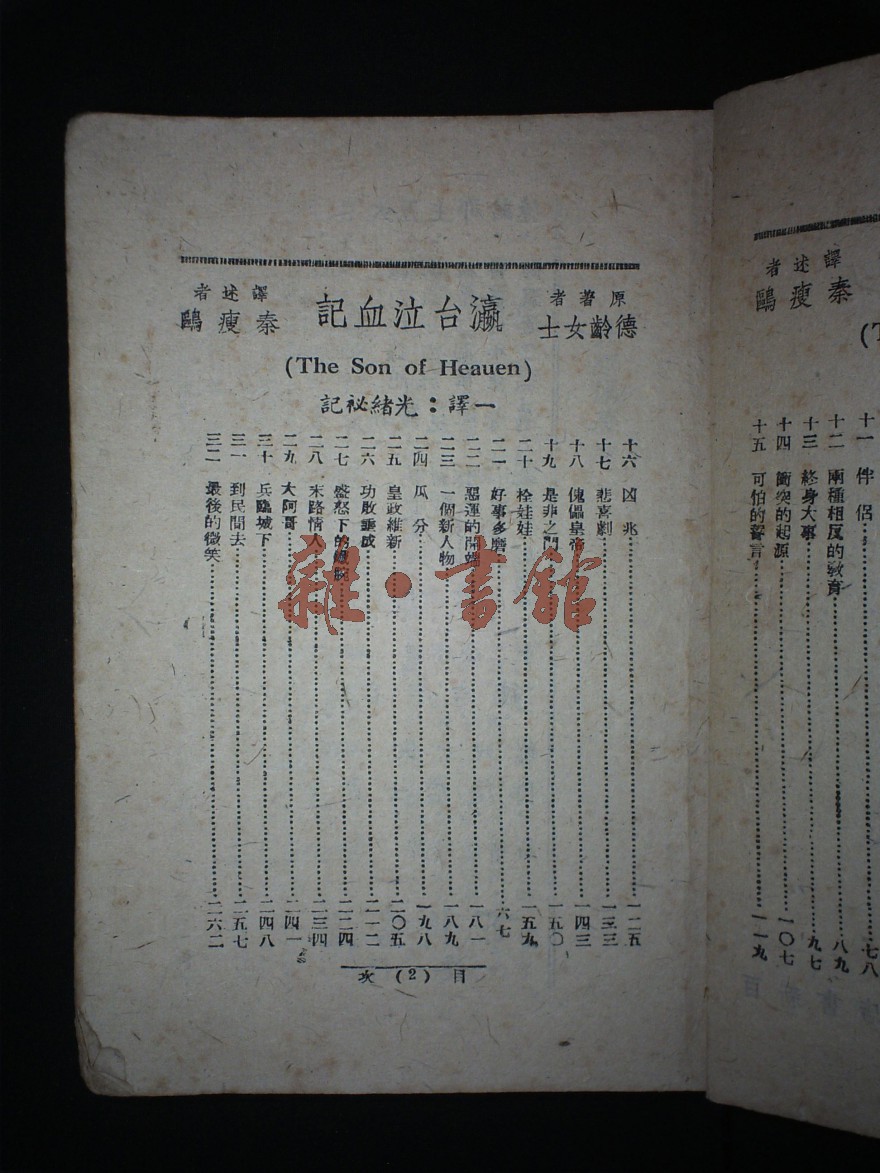 原著者
德齡女士
瀛台泣血記
譯述者
秦瘦鷗
(The Son of Heauen)
一譯：光緒祕記
十六 凶兆……一二五
十七 悲喜劇……一三三
十八 傀儡皇帝……一四三
十九 是非之門……一五〇
二十 栓娃娃……一五九
二一 好事多磨……六七
二二 惡運的開端……一八一
二三 一個新人物……一八九
二四 瓜分……一九八
二五 皇政維新……二〇五
二六 功敗垂成……二一二
二七 盛怒下的鐵腕……二二四
二八 末路情人……二三四
二九 大阿哥……二四一
三十 兵臨城下……二四八
三一 到民間去……二五七
三二 最後的微笑……二六二
目 (2) 次
譯述者
秦瘦鷗
十一 伴侶……七八
十二 兩種相反的教育……八九
十三 終身大事……九七
十四 衝突的起源……一〇七
十五 可怕的誓言……一一九
雜·書館